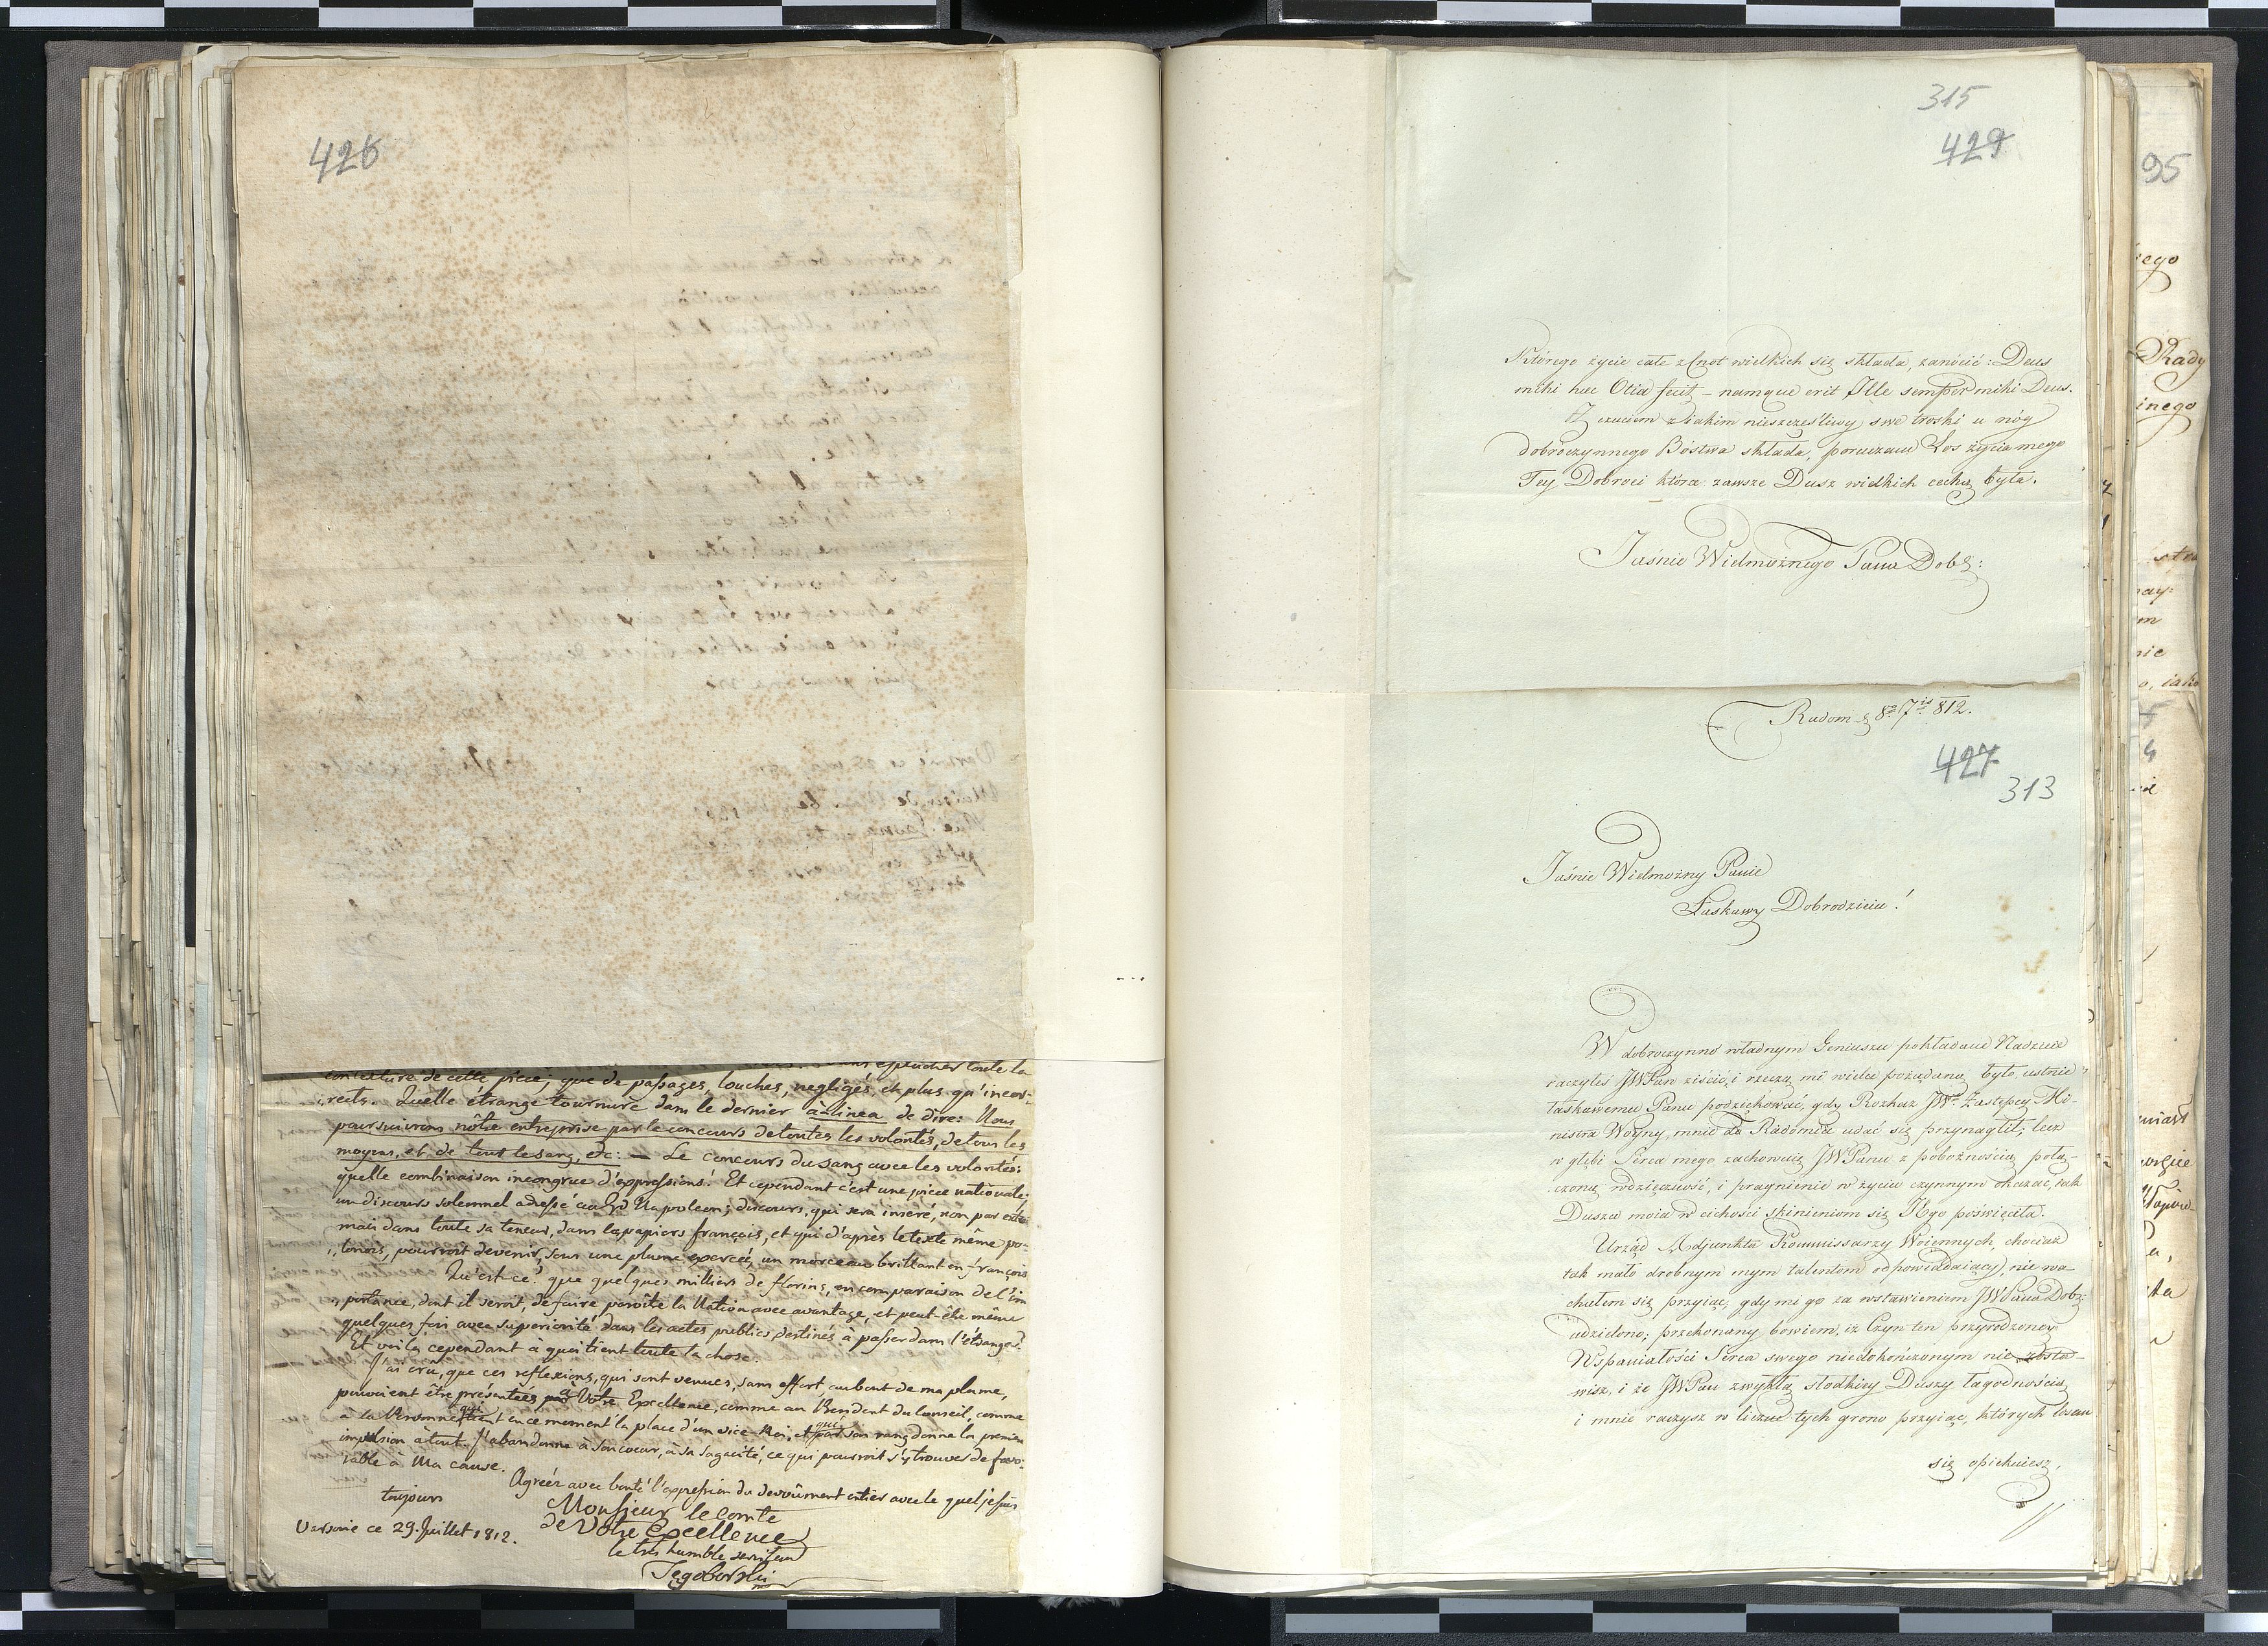 426
contexture de cette pièce, que de passages, louches, negligés, et plus qu'incor-
rects. Quelle étrange tournure dans le dernier à-linea de dire: Nous
poursuivrons nôtre entreprise par le concours de toutes les volontés, de tous les
moyens, et de tout le sang, etc: — Le concours du sang avec les volontés:
quelle combinaison incongrue d'expressions! Et cependant c'est une pièce nationale;
un discours solemnel adressé au Gd Napoleon; discours, qui sera inseré, non par extr
mais dans toute sa teneur, dans les papiers françois, et qui d'après le texte même po-
lonois, pourroit devenir, sous une plume exercée, un morceau brillant en françois
Qu'est-ce? que quelques milliers de florins, en comparaison de l'im
portance, dont il seroit, de faire paroître la Nation avec avantage, et peut-être même
quelques fois avec superiorité dans les actes publics destinés à passer dans l'étranger?
Et voilà cependant à quoi tient toute la chose.
J'ai crû, que ces reflexions, qui sont venues, sans effort, au bout de ma plume,
pouvoient être présentées à Votre Excellence, comme au President du Conseil, comme
à la Personne qui tient en ce moment la place d'un vice-Roi, et qui par son rang donne la premiere
impulsion à tout. J'abandonne à son coeur, à sa sagacité, ce qui pourroit s'y trouver de favo-
rable à Ma cause.
Agréez avec bonté l'expression du devoûment entier avec le quel je suis
toujours
Monsieur le Comte
de Votre Excellence
Varsovie ce 29. Juillet 1812.
le très humble serviteur
Tęgoborski
315
429
Którego życie całe z Cnot wielkich się składa, zanócić: Deus
mihi haec Otia fecit – namque erit Ille semper mihi Deus.
Z czuciem z iakim nieszczęśliwy swe troski u nóg
dobroczynnego Bóstwa składa, poruczam Los życia mego
Tey Dobroci która zawsze Dusz wielkich cechą była.
Jaśnie Wielmożnego Pana Dobz:
Radom d 8o 7is 812.
427
313
Jaśnie Wielmożny Panie
Łaskawy Dobrodzieiu!
W dobroczynno władnym Geniuszu pokładane Nadzieie
raczyłeś JWPan ziścić; i rzeczą mi wielce pożądaną było, ustnie
łaskawemu Panu podziękować, gdy Rozkaz JWo Zastępcy Mi-
nistra Woyny, mnie do Radomia udać się przynaglił; lecz
w głębi Serca mego zachowuię JWPanu z pobożnością połą-
czoną wdzięczność, i pragnienie w życiu czynnym okazać, iak
Dusza moia w cichości skinieniom się Jego poświęciła.
Urząd Adjunkta Kommissarzy Woiennych, chociaż
tak mało drobnym mym talentom odpowiadaiący, nie wa-
chałem się przyiąć, gdy mi go za wstawieniem JWPana Dobz:
udzielono; przekonany bowiem, iż Czyn ten przyrodzoney
Wspaniałości Serca swego niedokończonym nie zosta-
wisz, i że JWPan zwykłą słodkiey Duszy łagodnością
i mnie raczysz w liczne tych grono przyiąć, których losem
się opiekuiesz,
95